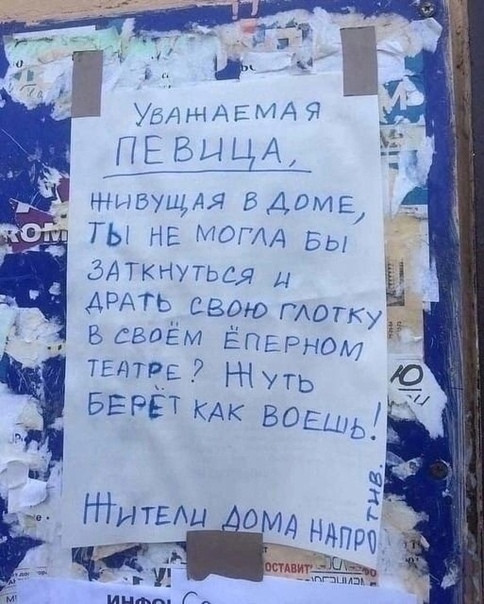 УВАЖАЕМАЯ
ПЕВИЦА,
ЖИВУЩАЯ В ДОМЕ,
ТЫ НЕ МОГЛА БЫ
ЗАТКНУТЬСЯ И
ДРАТЬ СВОЮ ГЛОТКУ
В СВОЁМ ЁПЕРНОМ
ТЕАТРЕ? ЖУТЬ
БЕРЁТ КАК ВОЕШЬ!
ЖИТЕЛИ ДОМА НАПРОТИВ.
ОСТАВИТ